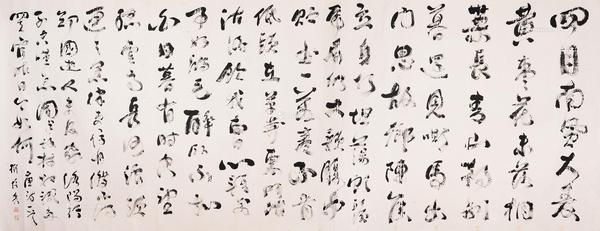 四月南風大麦
黄枣花未落桐
葉長青山朝別
暮還見嘶馬出
门思故鄉陳侯
立身何坦蕩虬鬚
虎眉仍大顙腹中
貯书一萬卷不肯
低頭在草莽東門
沽酒飲我曹心輕萬
事如鴻毛醉卧不知
白日暮有時空望
孤雲高長河浪頭
連天黑津停舟渡不得
鄭國遊人未及家洛陽行
子空嘆息聞道故林相識多
罷官昨日今如何 唐詩